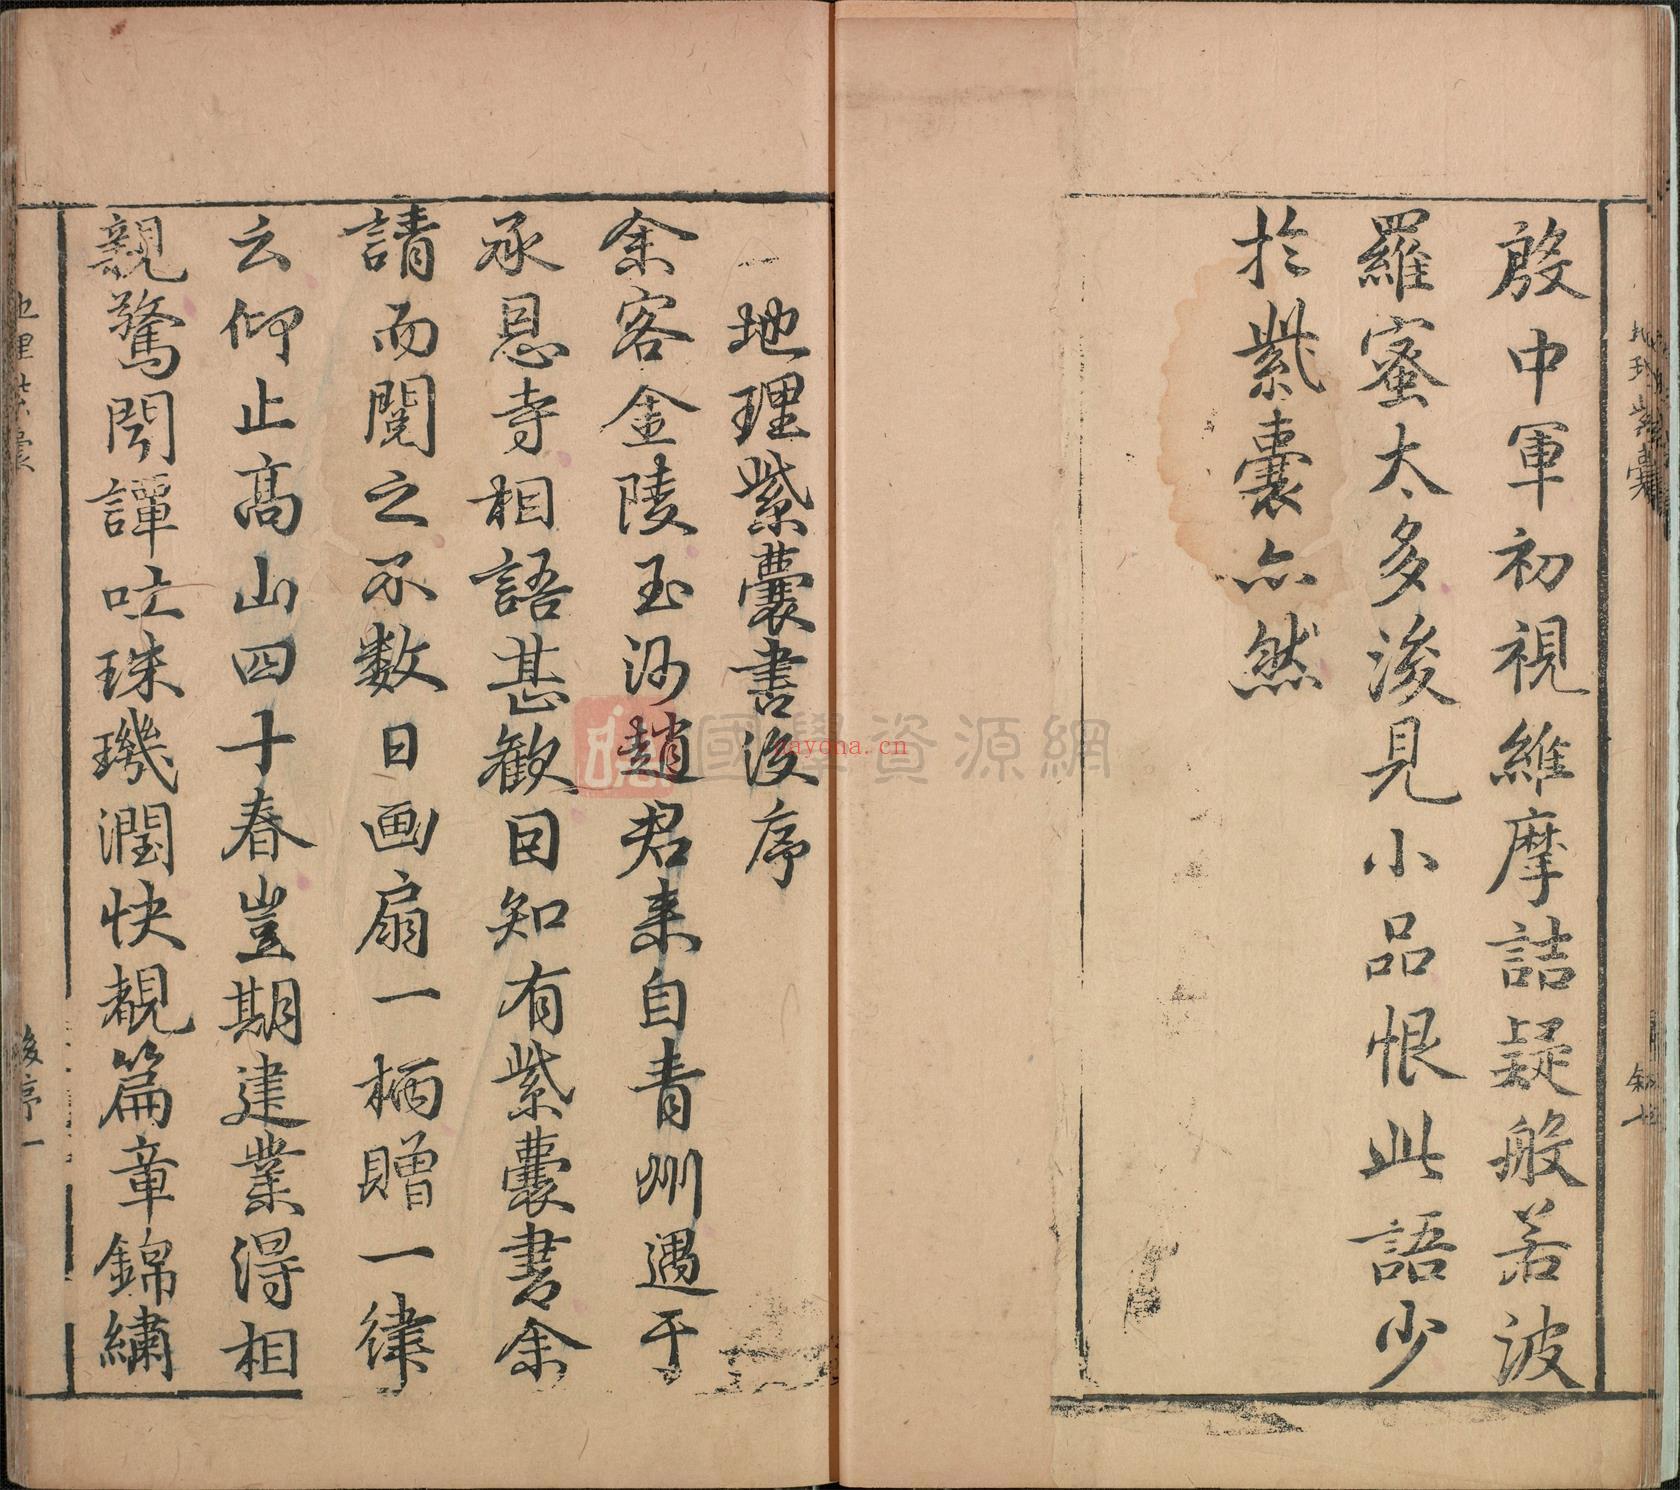 殷中軍初視維摩詰疑般若波
羅蜜太多後見小品恨此語少
於紫囊亦然
地理紫囊
叙七
地理紫囊書後序
余客金陵玉沙趙君来自青州遇于
承恩寺相語甚歡因知有紫囊書余
請而閱之不数日画扇一柄贈一律
云仰止高山四十春豈期建業得相
親驚閱譚吐珠璣潤快覩篇章錦繡
地理紫囊
後序一
國學資源網
nayona.cn